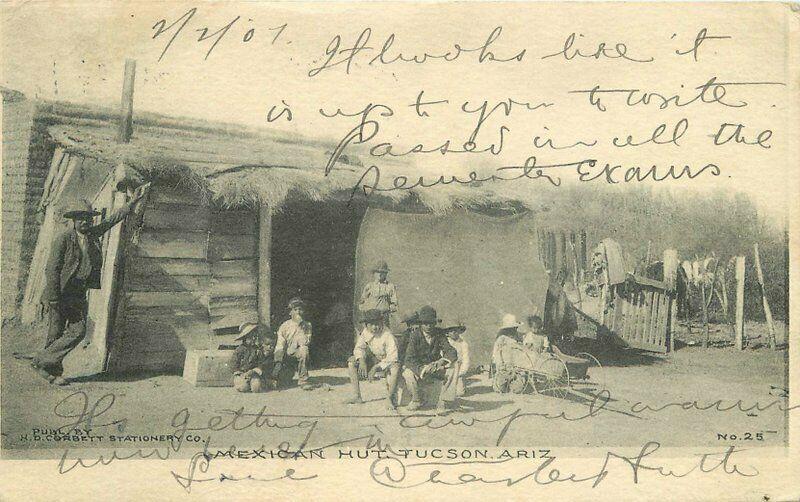 2/2/07.
It looks like it
is up to you to write.
Passed in all the
semester Exams.
Its getting awful warm
now here in
PUBL. BY
H.D. CORBETT STATIONERY CO.
No. 25
MEXICAN HUT, TUCSON, ARIZ.
Love